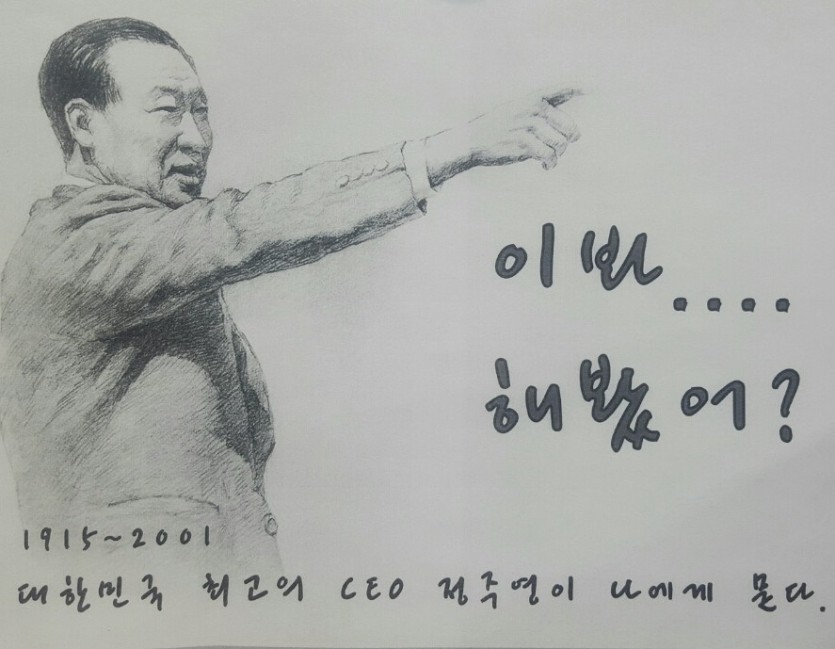 이봐....
해봤어?
1915~2001
대한민국 최고의 CEO 정주영이 나에게 묻다.